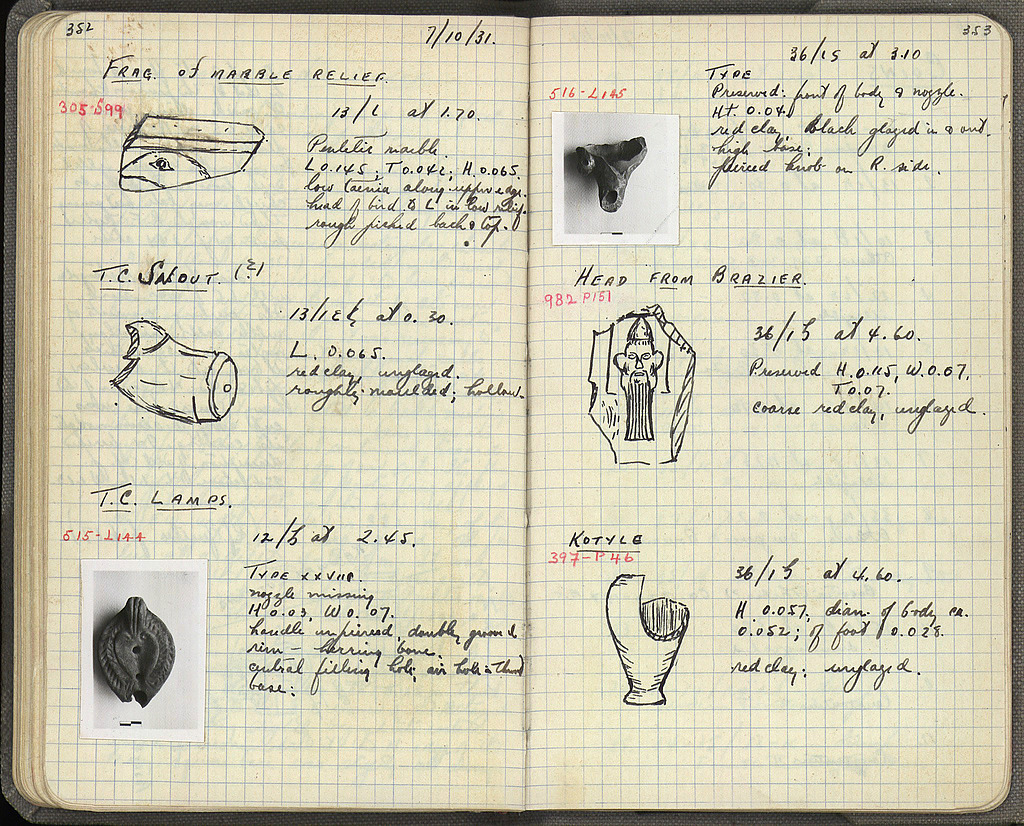 352
7/10/31.
FRAG. OF MARBLE RELIEF.
305-S99
13/ at 1.70.
Pentelic marble.
L 0.145; T 0.042; H. 0.065.
low taenia along upper edge.
head of bird to L in low relief.
rough picked back & top.
T.C. SNOUT. (?)
at 0.30.
L. 0.065.
red clay, unglazed.
roughly moulded; hollow.
T.C. LAMPS.
515-L144
12/ at 2.45.
TYPE XXVIII.
nozzle missing
H 0.03, W 0.07.
handle unpierced, doubly grooved
rim - herring bone.
central filling hole, air hole in
base:
353
36/ at 3.10
TYPE
516-L145
Preserved: front of body & nozzle.
Ht. 0.04
red clay. Black glazed in & out.
high base;
pierced knob on R. side.
HEAD FROM BRAZIER.
982 P151
36/ at 4.60.
Preserved H. 0.115, W. 0.07,
T 0.07.
coarse red clay, unglazed.
KOTYLE
397-P46
36/ at 4.60.
H 0.057, diam. of body ca.
0.052; of foot 0.028.
red clay: unglazed.